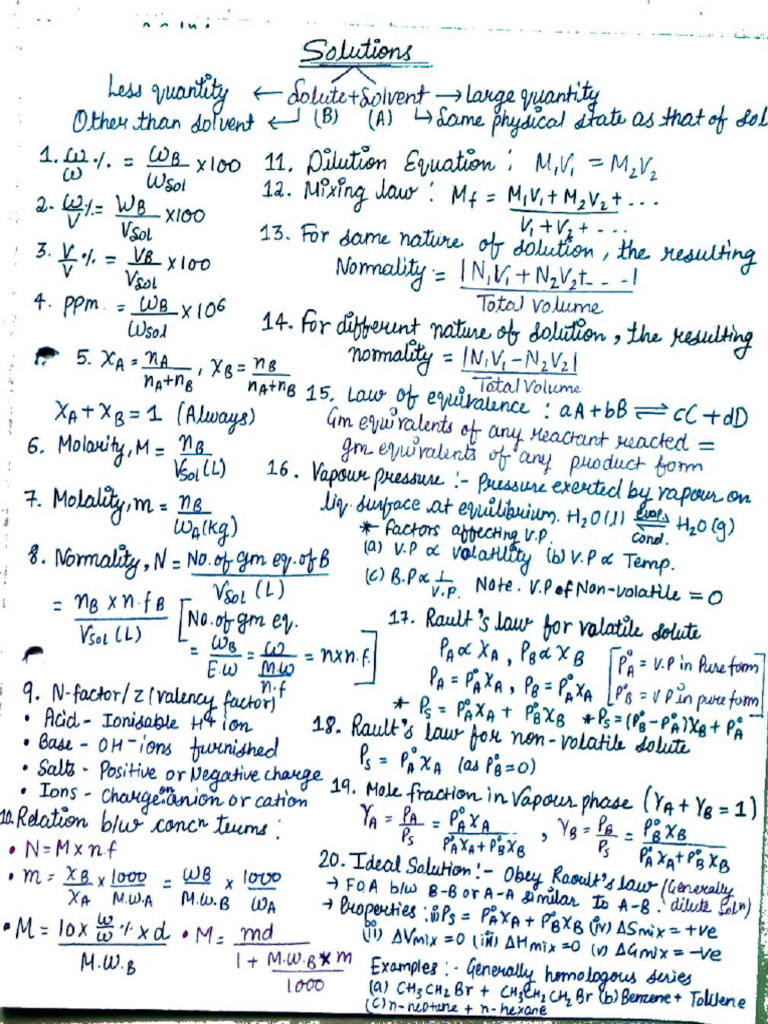 Solutions
Less quantity ← Solute + Solvent → Large quantity
Other than solvent ↵ (B) (A) ↳ Same physical state as that of sol
1. ω/ω % = ωB/ωSol × 100
2. ω/V % = WB/VSol × 100
3. V/V % = VB/VSol × 100
4. ppm = ωB/ωSol × 10⁶
5. XA = nA/(nA+nB), XB = nB/(nA+nB)
XA + XB = 1 (Always)
6. Molarity, M = nB/VSol(L)
7. Molality, m = nB/ωA(kg)
8. Normality, N = No. of gm eq. of B/VSol(L)
= nB × n.fB/VSol(L) [No. of gm eq.
= ωB/E.W = ω/(M.W/n.f) = n×n.f]
9. N-factor/z (valency factor)
• Acid - Ionisable H⁺ ion
• Base - OH⁻ ions furnished
• Salts - Positive or Negative charge
• Ions - Charge on anion or cation
10. Relation b/w concn terms :
• N = M × nf
• m = XB/XA × 1000/M.W.A = ωB/M.W.B × 1000/ωA
• M = 10 × ω/ω % × d/M.W.B • M = md/(1 + M.W.B × m/1000)
11. Dilution Equation : M₁V₁ = M₂V₂
12. Mixing law : Mf = (M₁V₁ + M₂V₂ + ...)/(V₁ + V₂ + ...)
13. For same nature of solution, the resulting
Normality = |N₁V₁ + N₂V₂+ - - -|/Total volume
14. For different nature of solution, the resulting
normality = |N₁V₁ - N₂V₂|/Total Volume
15. Law of equivalence : aA + bB ⇌ cC + dD
Gm equivalents of any reactant reacted =
gm equivalents of any product form
16. Vapour pressure :- Pressure exerted by vapour on
liq. surface at equilibrium. H₂O(l) ⇌ (evap./Cond.) H₂O(g)
* Factors affecting V.P.
(a) V.P ∝ volatility (b) V.P ∝ Temp.
(c) B.P ∝ 1/V.P. Note. V.P of Non-volatile = 0
17. Rault's law for volatile solute
PA ∝ XA, PB ∝ XB [P°A = V.P in Pure form
PA = P°A XA, PB = P°A XA P°B = V P in pure form]
* PS = P°A XA + P°B XB * PS = (P°B - P°A)XB + P°A
18. Rault's law for non-volatile solute
PS = P°A XA (as P°B = 0)
19. Mole fraction in Vapour phase (YA + YB = 1)
YA = PA/PS = P°A XA/(P°A XA + P°B XB), YB = PB/PS = P°B XB/(P°A XA + P°B XB)
20. Ideal Solution :- Obey Raoult's law (Generally dilute Soln)
→ FOA b/w B-B or A-A similar to A-B.
→ Properties : i) PS = P°A XA + P°B XB (iv) ΔSmix = +ve
(ii) ΔVmix = 0 (iii) ΔHmix = 0 (v) ΔGmix = -ve
Examples :- Generally homologous series
(a) CH₃CH₂Br + CH₃CH₂CH₂Br (b) Benzene + Toluene
(c) n-heptane + n-hexane